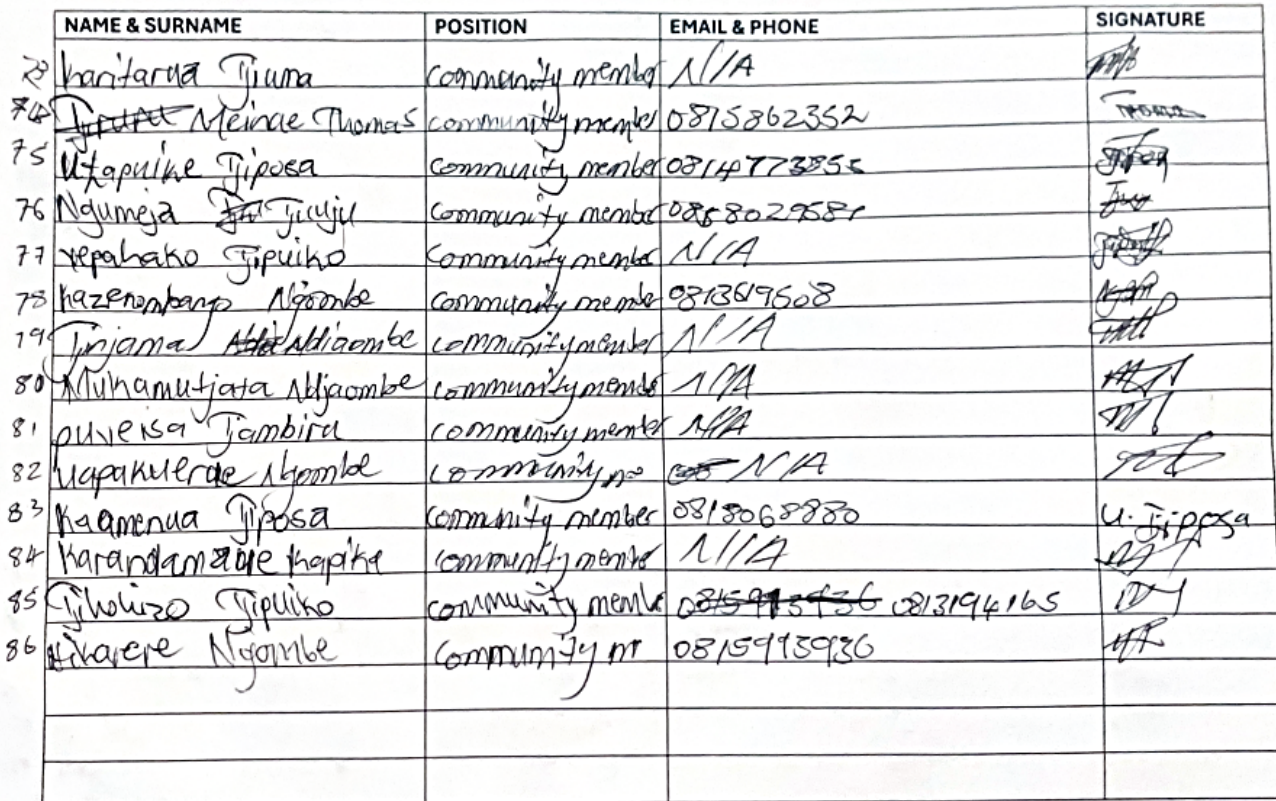 NAME & SURNAME POSITION EMAIL & PHONE SIGNATURE
73 Karitarua Tjiuna community member N/A
74 Meinae Thomas community member 0815862352 Thomas
75 Utapuike Tjiposa community member 0814773855
76 Ngumeja Tjiuju community member
77 Yepahako Tjipuiko community member N/A
78 Kazenombanjo Ngombe community member 0813619508
79 Tjinjama Ndjaombe community member N/A
80 Mukamutjata Ndjaombe community membe N/A
81 puveisa Tjambiru community member N/A
82 Uapakuerae Ngombe community N/A
83 Kaamenua Tjiposa community member 0818068880 U. Tjiposa
84 Kapika community member N/A
85 Tjipuiko community membe 0815993936 0813194165
86 Ngombe community m 0815993936